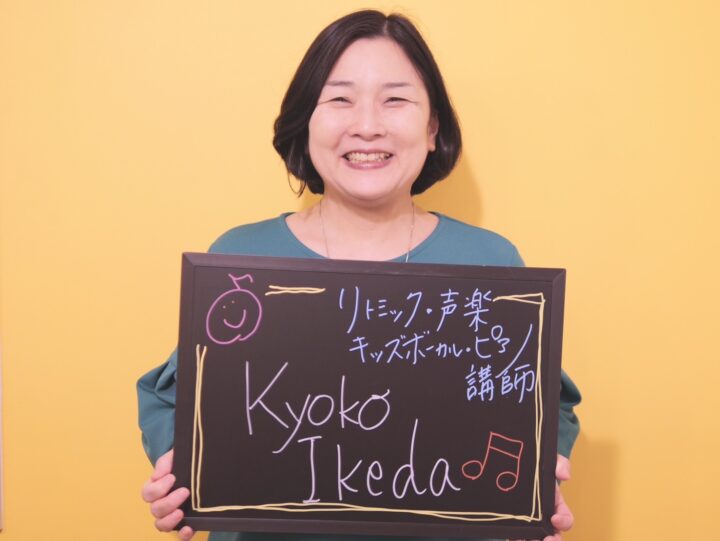 リトミック・声楽
キッズボーカル・ピアノ
講師
Kyoko
Ikeda